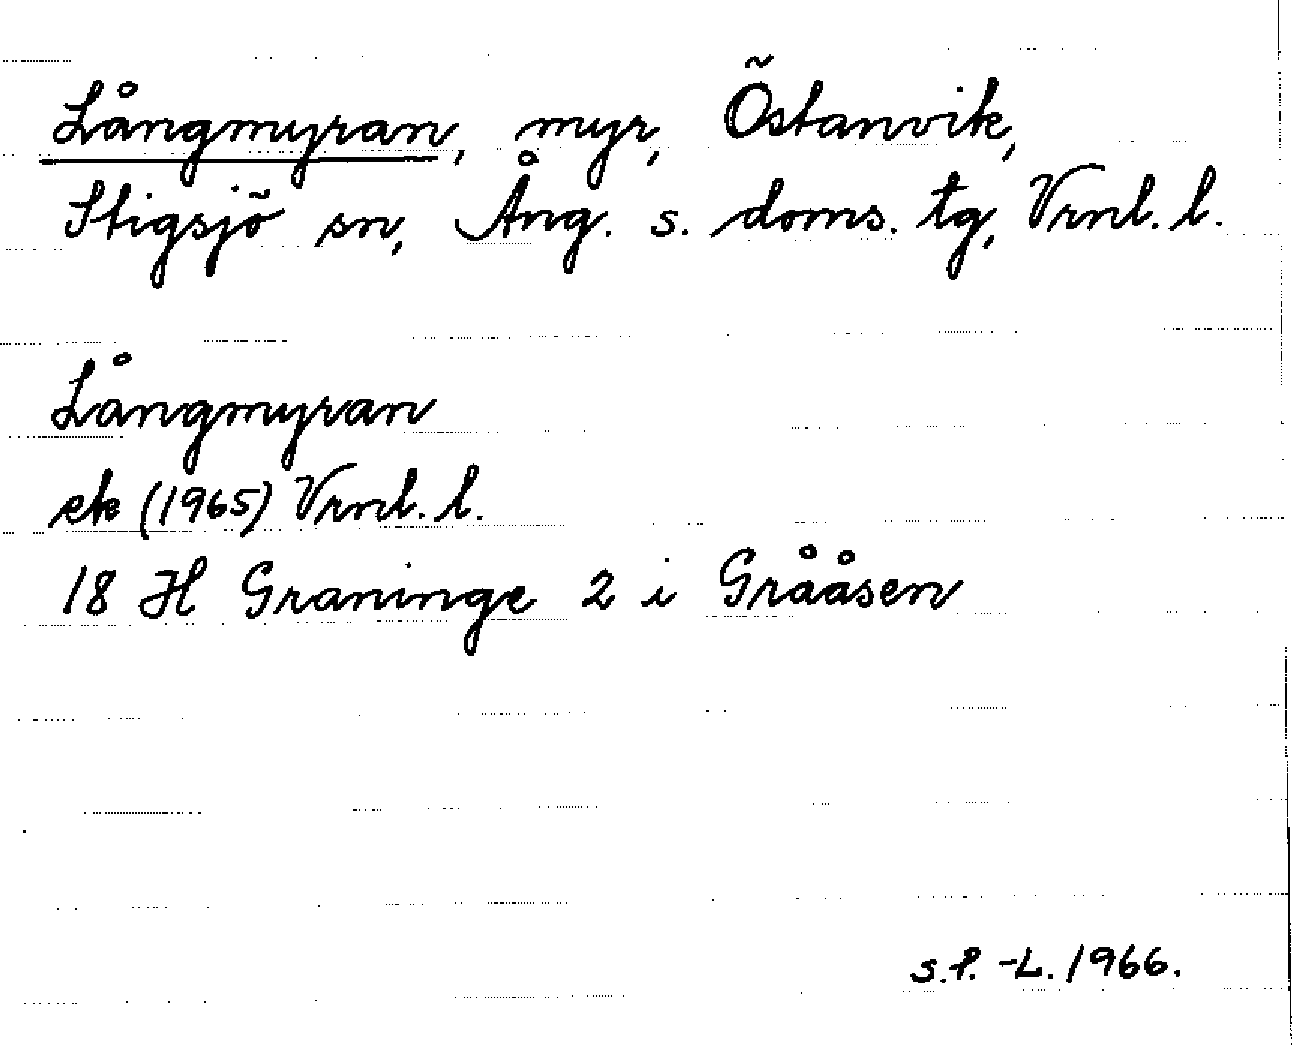 Långmyran, myr, Östanvik,
Stigsjö sn, Ång. s. doms. tg, Vrnl. l.
Långmyran
ek (1965) Vrnl. l.
18 H Graninge 2 i Grååsen
s.f. -L. 1966.